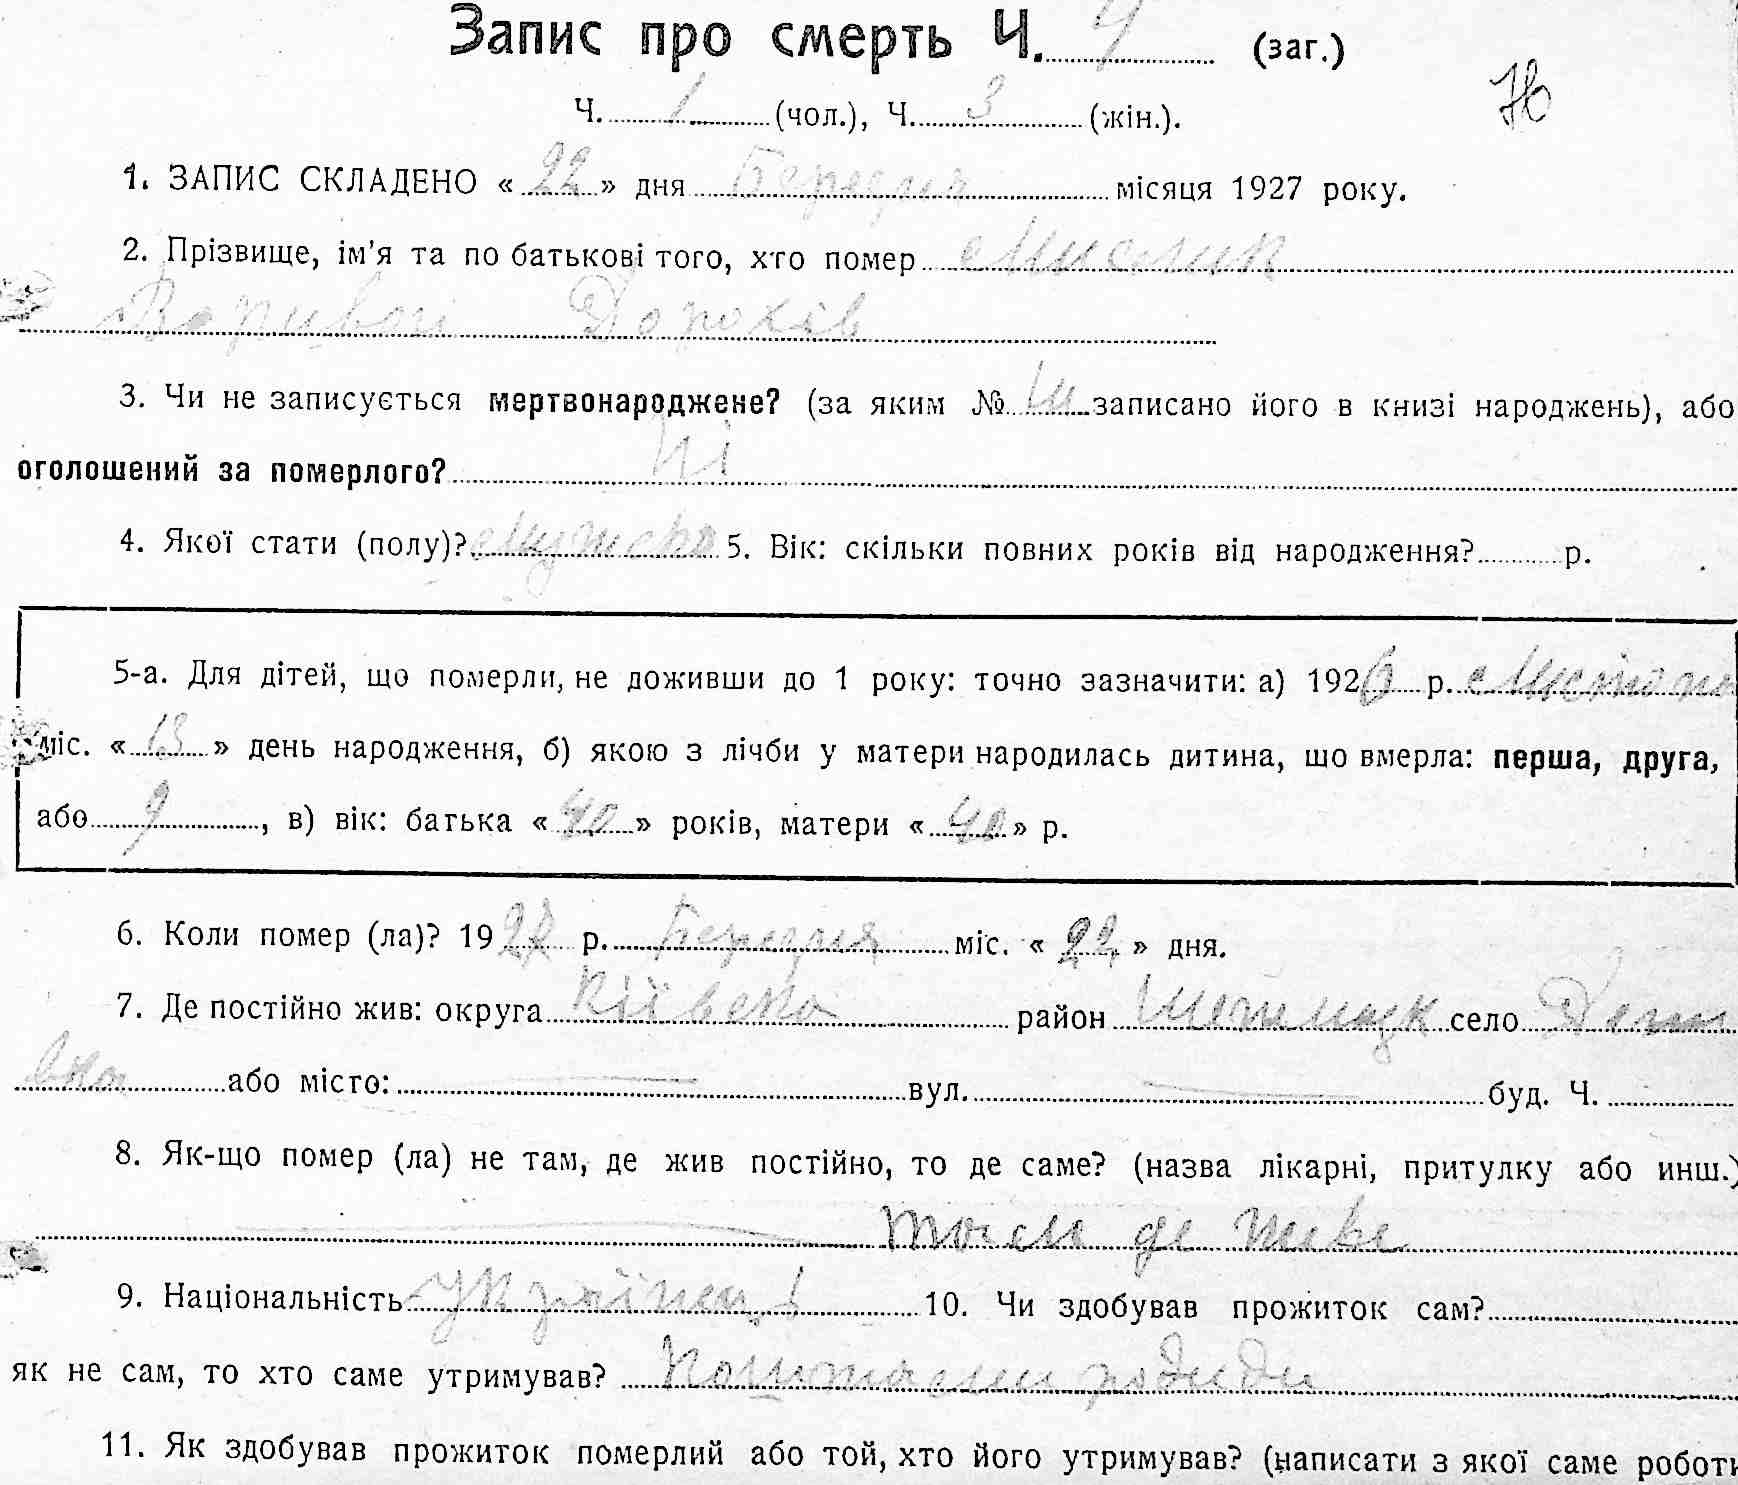 Запис про смерть Ч. 4 (заг.)
Ч. 1 (чол.), Ч. 3 (жін.).
1. ЗАПИС СКЛАДЕНО « 22 » дня Березня місяця 1927 року.
2. Прізвище, ім'я та по батькові того, хто помер Мислик
Дорохів
3. Чи не записується мертвонароджене? (за яким № записано його в книзі народжень), або
оголошений за померлого? Ні
4. Якої стати (полу)? Мужско 5. Вік: скільки повних років від народження? р.
5-а. Для дітей, що померли, не доживши до 1 року: точно зазначити: а) 1926 р. Листопа
міс. « 13 » день народження, б) якою з лічби у матери народилась дитина, що вмерла: перша, друга,
або 9 , в) вік: батька « 40 » років, матери « 40 » р.
6. Коли помер (ла)? 1927 р. Березня міс. « 22 » дня.
7. Де постійно жив: округа Київско район село
або місто: вул. буд. Ч.
8. Як-що помер (ла) не там, де жив постійно, то де саме? (назва лікарні, притулку або инш.)
там де живе
9. Національність Українец 10. Чи здобував прожиток сам?
як не сам, то хто саме утримував?
11. Як здобував прожиток померлий або той, хто його утримував? (написати з якої саме роботи